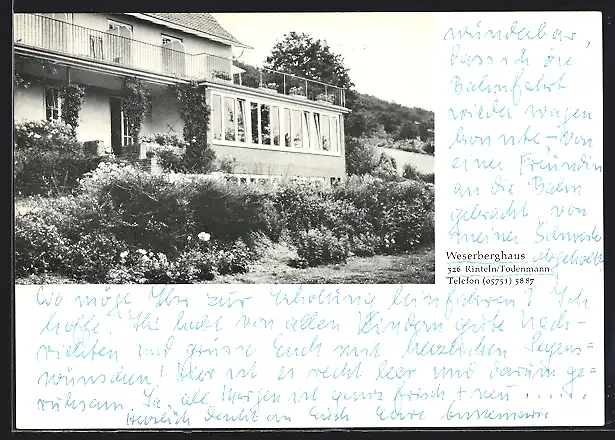 wunderbar,
dass ich die
Bahnfahrt
wieder wagen
konnte, von
einer Freundin
an die Bahn
gebracht von
meiner Schwester
abgeholt
Weserberghaus
326 Rinteln/Todenmann
Telefon (05751) 5887
Wo möge Ihr zur Erholung hinfahren? Ich
hoffe, Ihr habt von allen Kindern gute Nach-
richten und grüsse Euch mit herzlichen Segens-
wünschen! Hier ist es recht leer und darum ge-
ruhsam. Ja, alle Morgen ist ganz frisch + neu .....
Herzlich denkt an Euch Eure